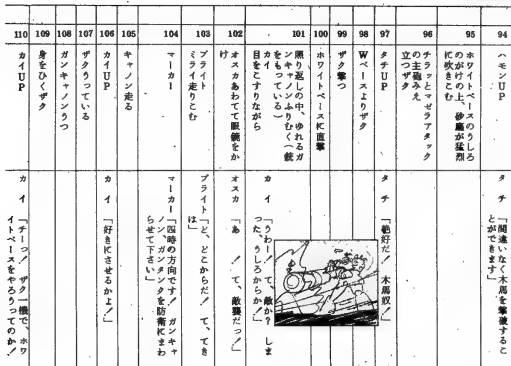 94
ハモンUP
タチ「間違いなく木馬を撃破するこ
とができます」
95
ホワイトベースのうしろ
のがけの上、砂塵が猛烈
に吹きこむ
96
チラッとマゼラアタック
の主砲みえ
立つザク
97
タチUP
タチ「絶好だ！木馬奴！」
98
Wベースよりザク
99
ザク撃つ
100
ホワイトベースに直撃
101
照り返しの中、ゆれるガ
ンキャノンふりむく（銃
をもっている）
カイ
目をこすりながら
カイ「うわー！て、敵か？しま
った、うしろからか！」
102
オスカあわてて眼鏡をか
け
オスカ「あ！て、敵襲だっ！」
103
ブライト
ミライ走りこむ
ブライト「ど、どこからだ！て、てき
は」
104
マーカー
マーカー「四時の方向です！ガンキャ
ノン、ガンタンクを防衛にまわ
らせて下さい」
105
キャノン走る
106
カイUP
カイ「好きにさせるかよ！」
107
ザクうっている
108
ガンキャノンうつ
109
身をひくザク
110
カイUP
カイ「チーっ！ザク一機で、ホワ
イトベースをやろうってのか！